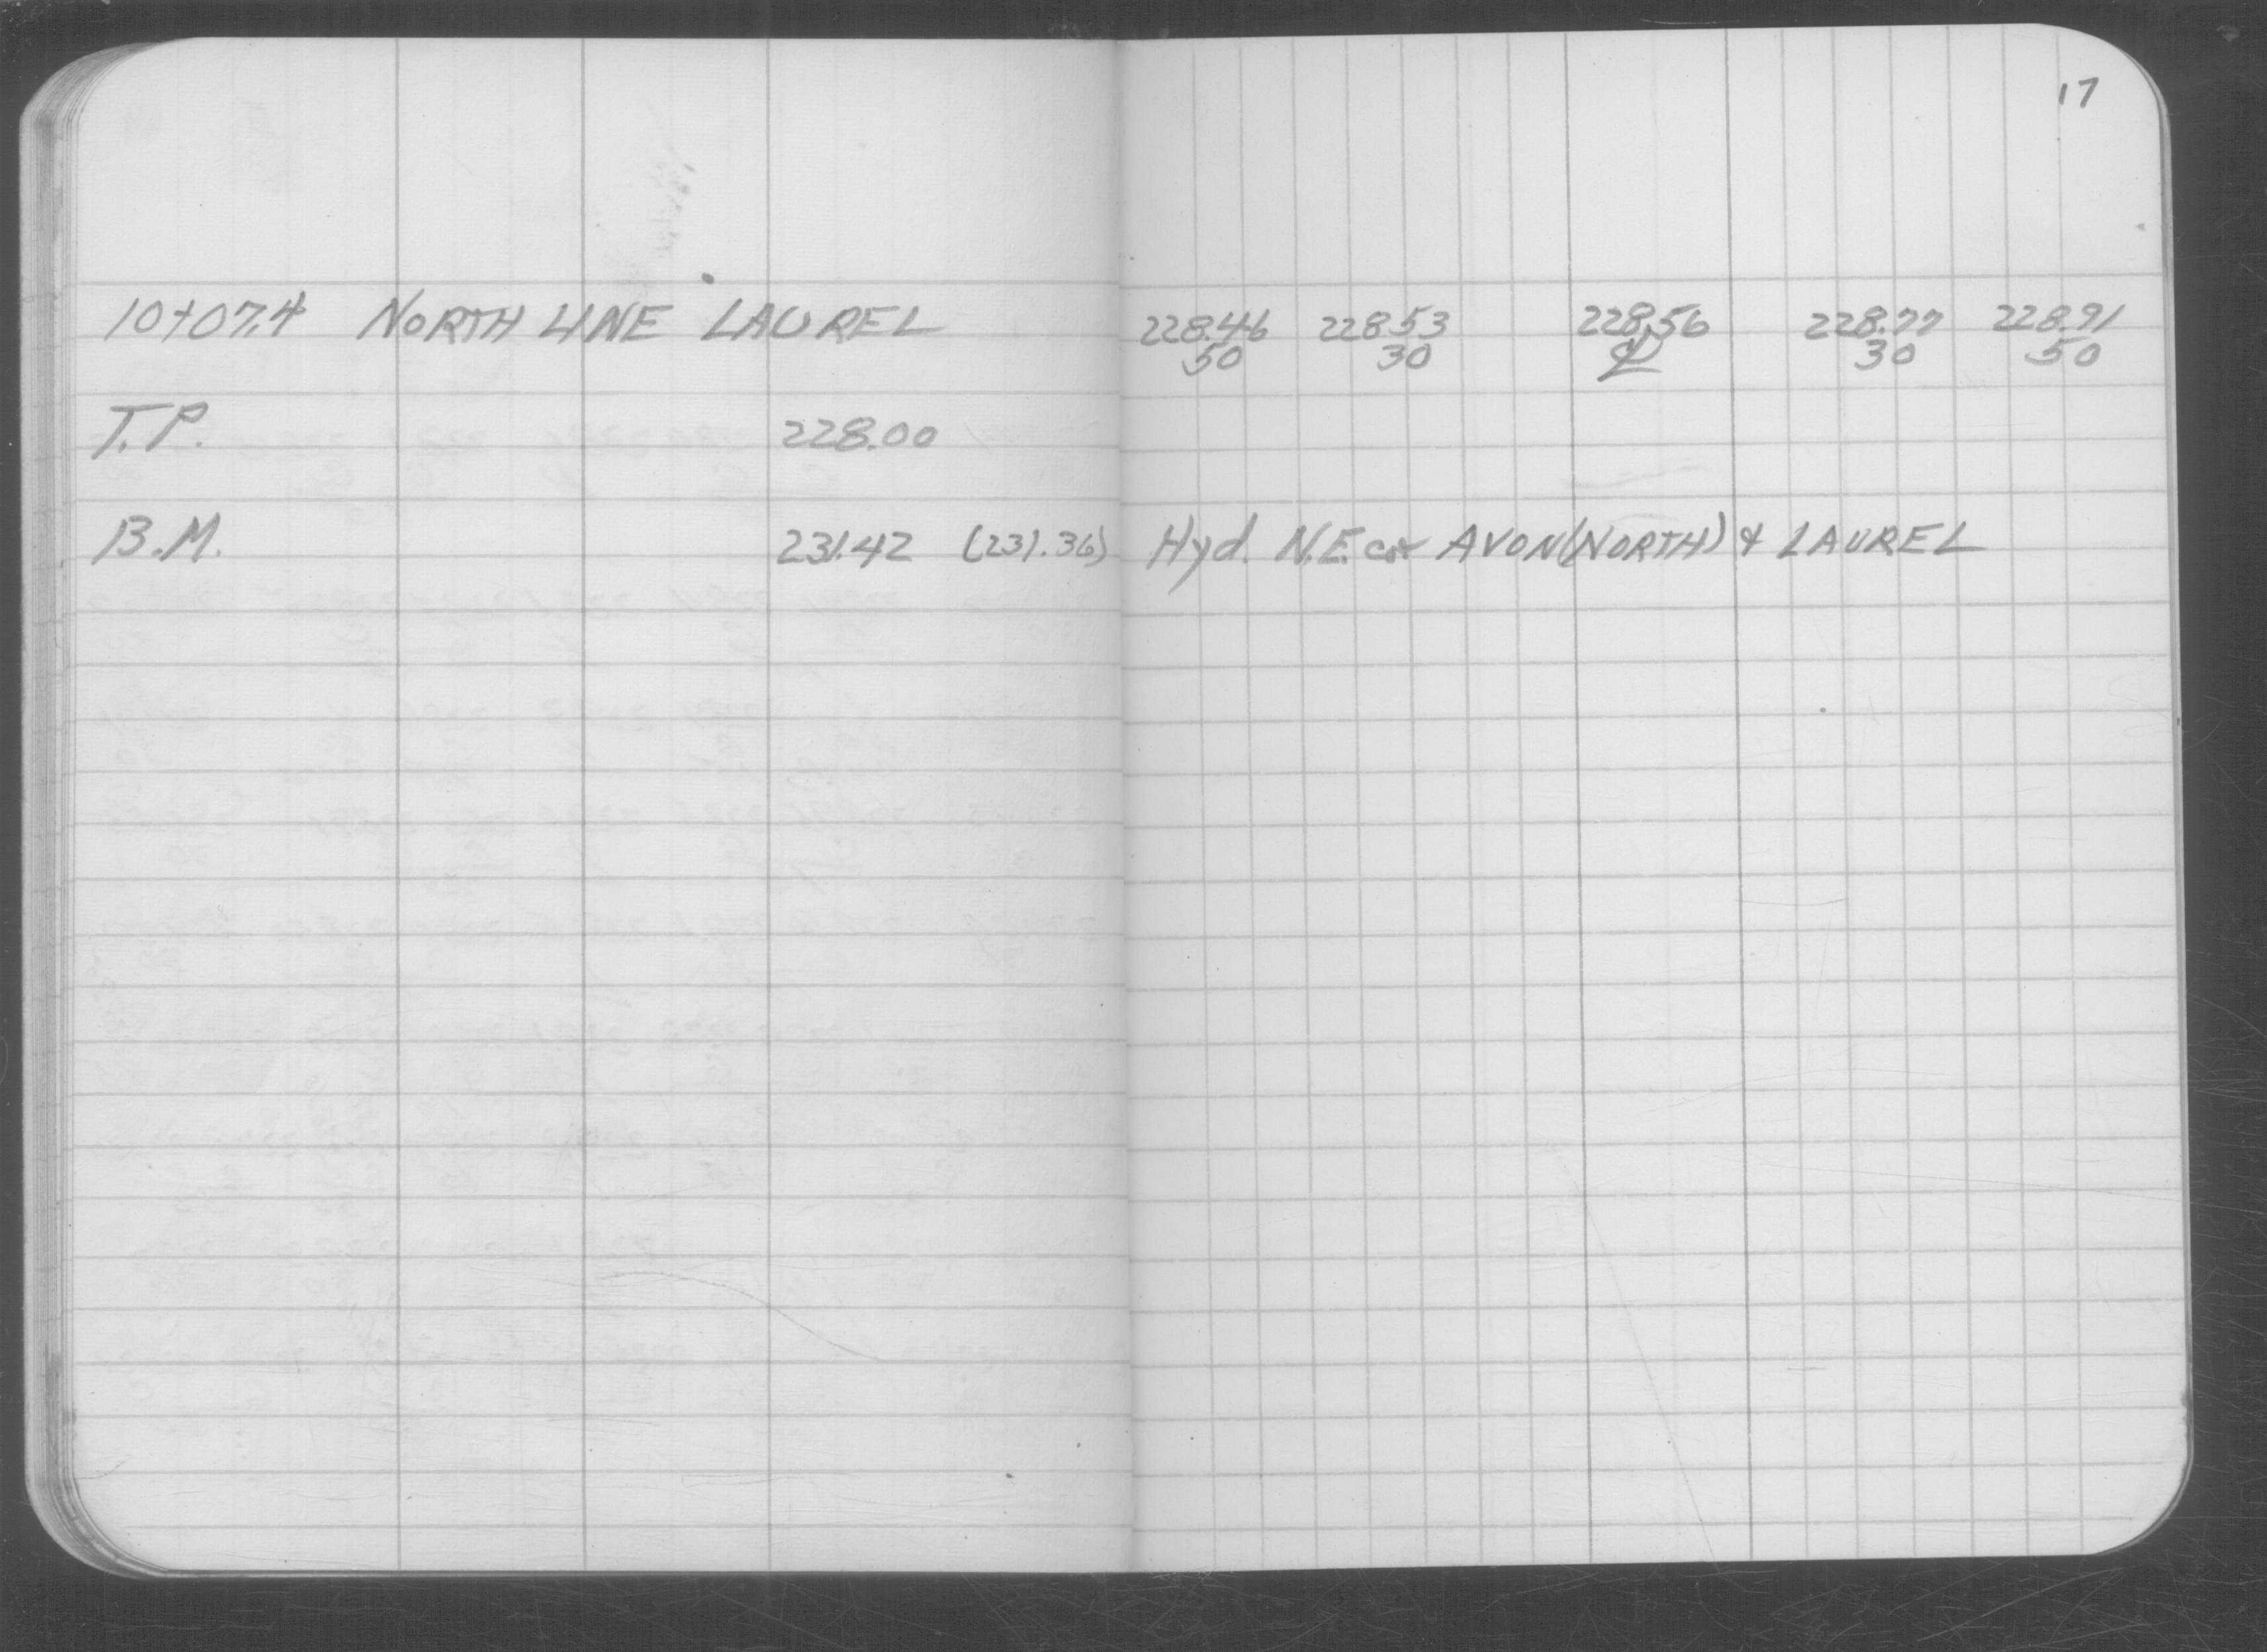 17
10+07.4 NORTH LINE LAUREL 228.46 228.53 228.56 228.77 228.91
50 30 ℄ 30 50
T.P. 228.00
B.M. 231.42 (231.36) Hyd. N.E. cor AVON (NORTH) & LAUREL